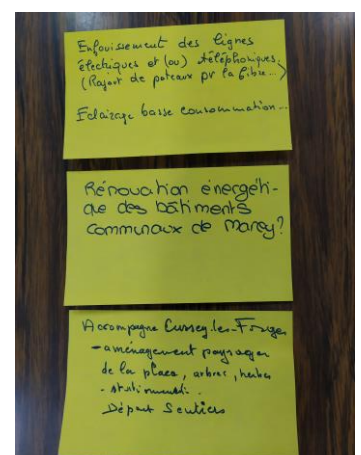 Enfouissement des lignes
électriques et (ou) téléphoniques.
(Rajout de poteaux pr la fibre...)
Eclairage basse consommation...
Rénovation énergéti-
que des bâtiments
communaux de Marey?
Accompagne Cussey-les-Forges
- aménagement paysager
de la place, arbres, herbes
- stationnement.
Départ Sentiers